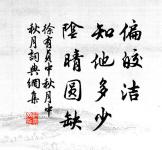 偏皎洁
知他多少
陰晴圆缺
徐有貞中秋月中
秋月詞典網集